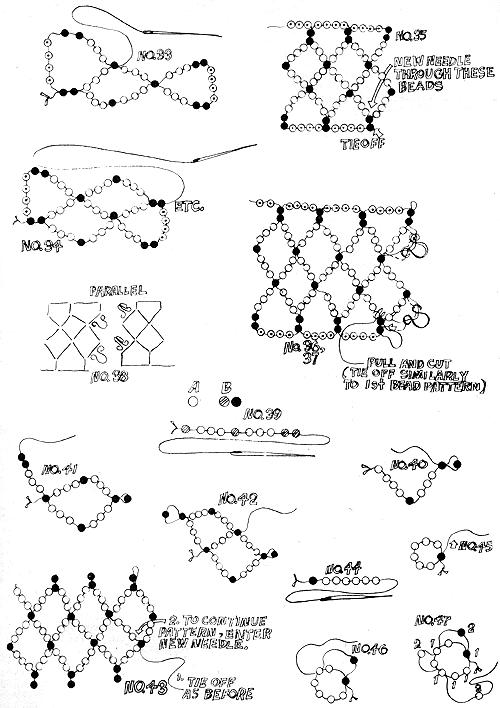 NO.33
NO.35
NEW NEEDLE
THROUGH THESE
BEADS
TIE OFF
ETC.
NO.34
PARALLEL
NO.38
NO.36,
37
PULL AND CUT
(TIE OFF SIMILARLY
TO 1st BEAD PATTERN)
A B
NO.39
NO.41
NO.40
NO.42
NO.45
NO.44
2. TO CONTINUE
PATTERN, ENTER
NEW NEEDLE.
NO.43
1. TIE OFF
AS BEFORE
NO.46
NO.47
2
2 1 1
1 1 1